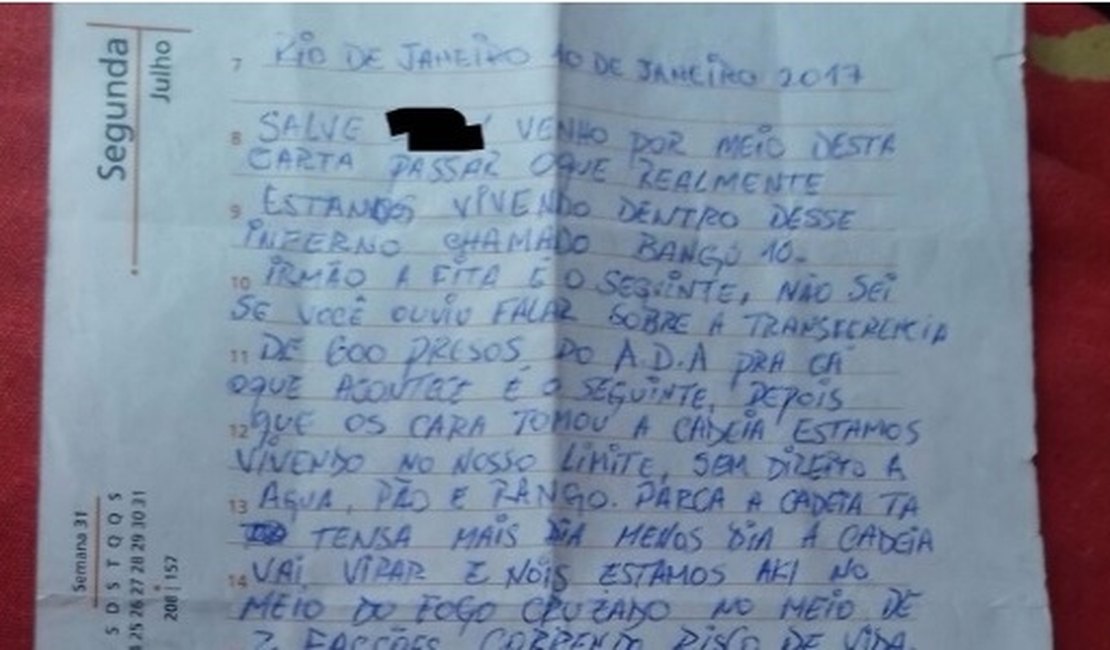 Segunda
Julho
7 RIO DE JANEIRO 10 DE JANEIRO 2017
8 SALVE VENHO POR MEIO DESTA
CARTA PASSAR OQUE REALMENTE
9 ESTAMOS VIVENDO DENTRO DESSE
INFERNO CHAMADO BANGU 10.
10 IRMÃO A FITA É O SEGUINTE, NÃO SEI
SE VOCÊ OUVIU FALAR SOBRE A TRANSFERENCIA
11 DE 600 PRESOS DO A.D.A PRA CÁ
OQUE ACONTECE É O SEGUINTE, DEPOIS
12 QUE OS CARA TOMOU A CADEIA ESTAMOS
VIVENDO NO NOSSO LIMITE, SEM DIREITO A
13 AGUA, PÃO E RANGO. PARCA A CADEIA TA
TENSA MAIS DIA MENOS DIA A CADEIA
14 VAI VIRAR E NÓIS ESTAMOS AKI NO
MEIO DO FOGO CRUZADO NO MEIO DE
2 FACÇÕES CORRENDO RISCO DE VIDA.
Semana 31
S D S T Q Q S
25 26 27 28 29 30 31
208 | 157